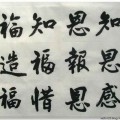 知恩感
恩報恩
知福惜
福造福